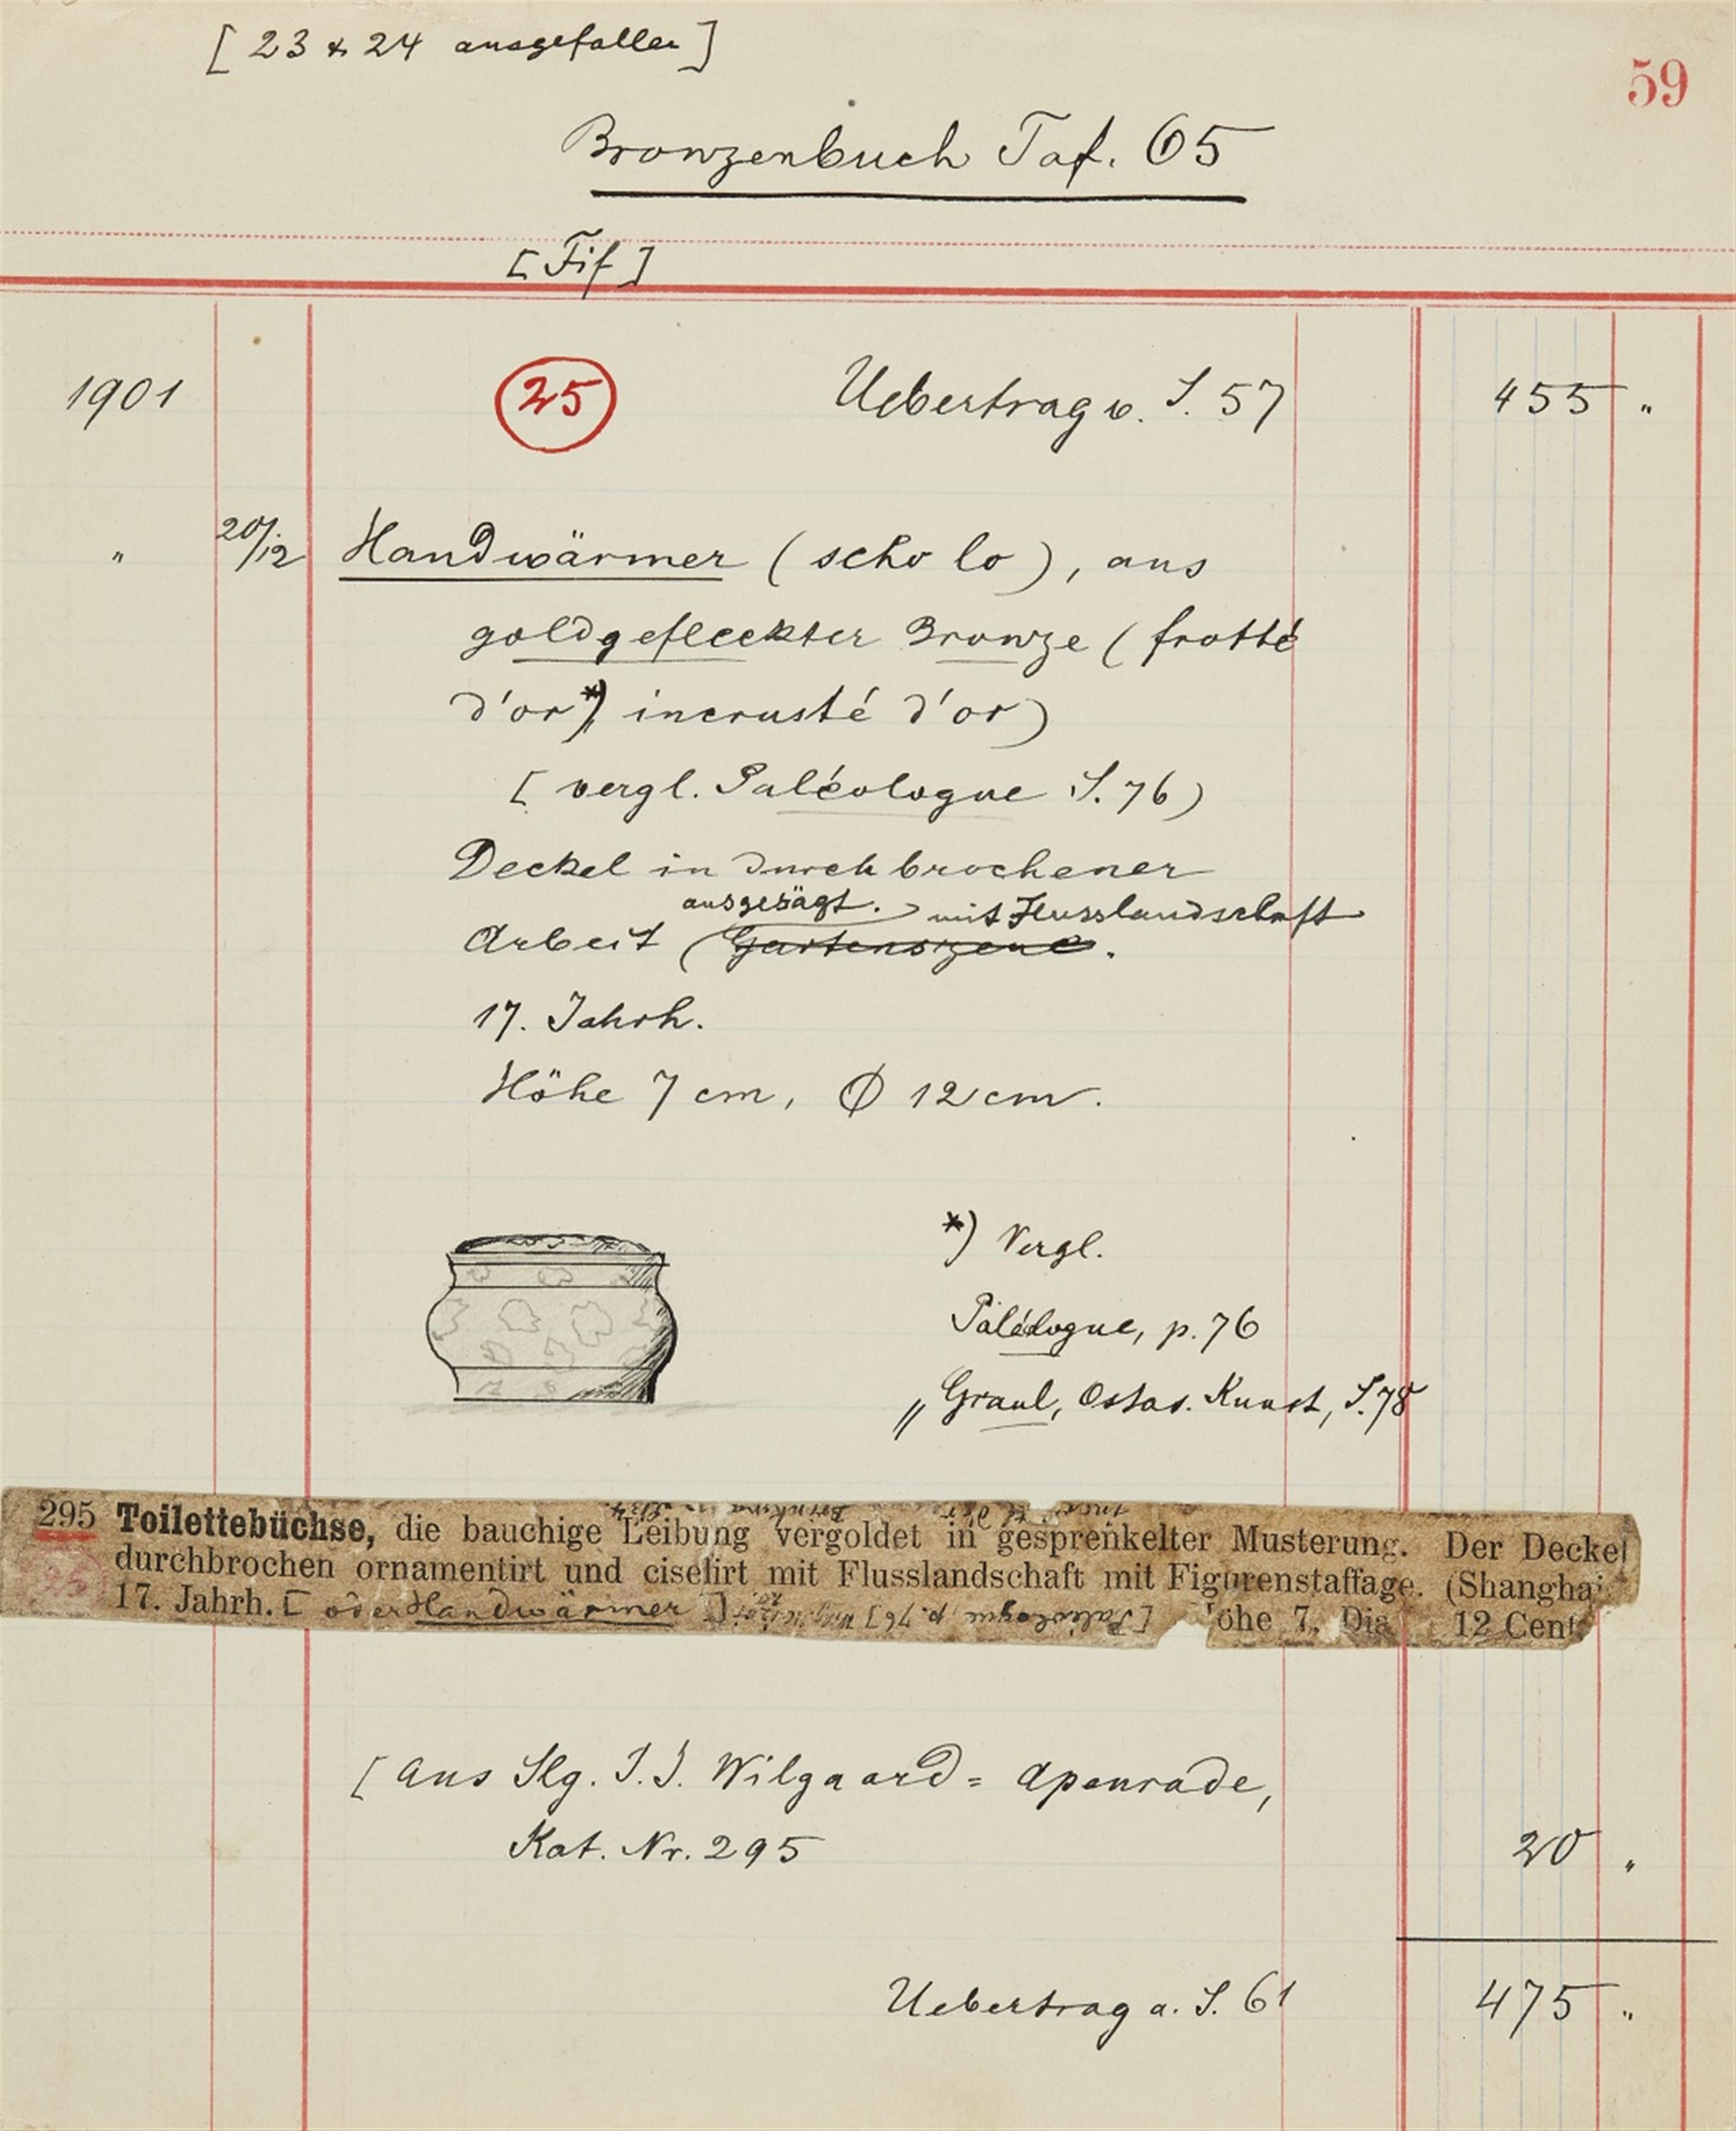 [ 23 & 24 ausgefallen ]
59
Bronzenbuch Taf. 65
[ Fif ]
1901 25 Uebertrag v. S. 57 455 "
" 20/12 Handwärmer ( scho lo ), aus
goldgefleckter Bronze ( frotté
d'or *) incrusté d'or )
[ vergl. Paléologue S. 76 )
Deckel in durchbrochener
ausgesägt. mit Flusslandschaft
Arbeit ( Gartenszene .
17. Jahrh.
Höhe 7 cm, Ø 12 cm.
*) Vergl.
Paléologue, p. 76
" Graul, Ostas. Kunst, S. 78
295 Toilettebüchse, die bauchige Leibung vergoldet in gesprenkelter Musterung. Der Deckel
durchbrochen ornamentirt und ciselirt mit Flusslandschaft mit Figurenstaffage. (Shanghai
17. Jahrh. [ oder Handwärmer ] [ Paléologue, p. 76 ] öhe 7, Dia 12 Cent
25
[ Aus Slg. J. J. Wilgaard = Apenrade,
Kat. Nr. 295
20 "
Uebertrag a. S. 61 475 "